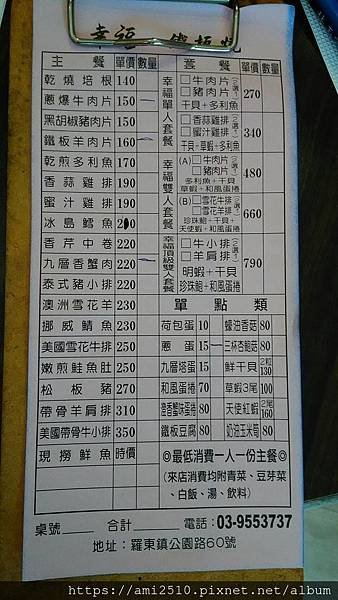 幸福
主餐 單價 數量
乾燒培根 140
蔥爆牛肉片 150
黑胡椒豬肉片 150
鐵板羊肉片 160
乾煎多利魚 170
香蒜雞排 190
蜜汁雞排 190
冰島鱈魚 200
香芹中卷 220
九層香蟹肉 220
泰式豬小排 220
澳洲雪花羊 230
挪威鯖魚 230
美國雪花牛排 250
嫩煎鮭魚肚 250
松板豬 270
帶骨羊肩排 310
美國帶骨牛小排 350
現撈鮮魚 時價
套餐 單價 數量
幸福單人套餐
□牛肉片
□豬肉片
(2選1)
干貝+多利魚
270
□香蒜雞排
□蜜汁雞排
(2選1)
干貝+草蝦+多利魚
340
幸福雙人套餐
(A)□牛肉片
□豬肉片
(2選1)
多利魚+干貝
草蝦+和風蛋捲
480
(B)□雪花牛排
□雪花羊排
(2選1)
珍珠鮑+干貝+
天使蝦+和風蛋捲
660
幸福頂級雙人套餐
□牛小排
□羊肩排
(2選1)
明蝦+干貝
珍珠鮑+和風蛋捲
790
單點類
荷包蛋 10 蠔油香菇 80
蔥蛋 15 三杯杏鮑菇 80
九層塔蛋 15 鮮干貝 2粒 130
和風蛋捲 70 草蝦3尾 100
澄香蟹味蛋捲 80 天使紅蝦 2尾 160
鐵板豆腐 80 奶油玉米筍 80
◎最低消費一人一份主餐◎
(來店消費均附青菜、豆芽菜
、白飯、湯、飲料)
桌號 合計 電話:03-9553737
地址:羅東鎮公園路60號
https://ami2510.pixnet.net/album